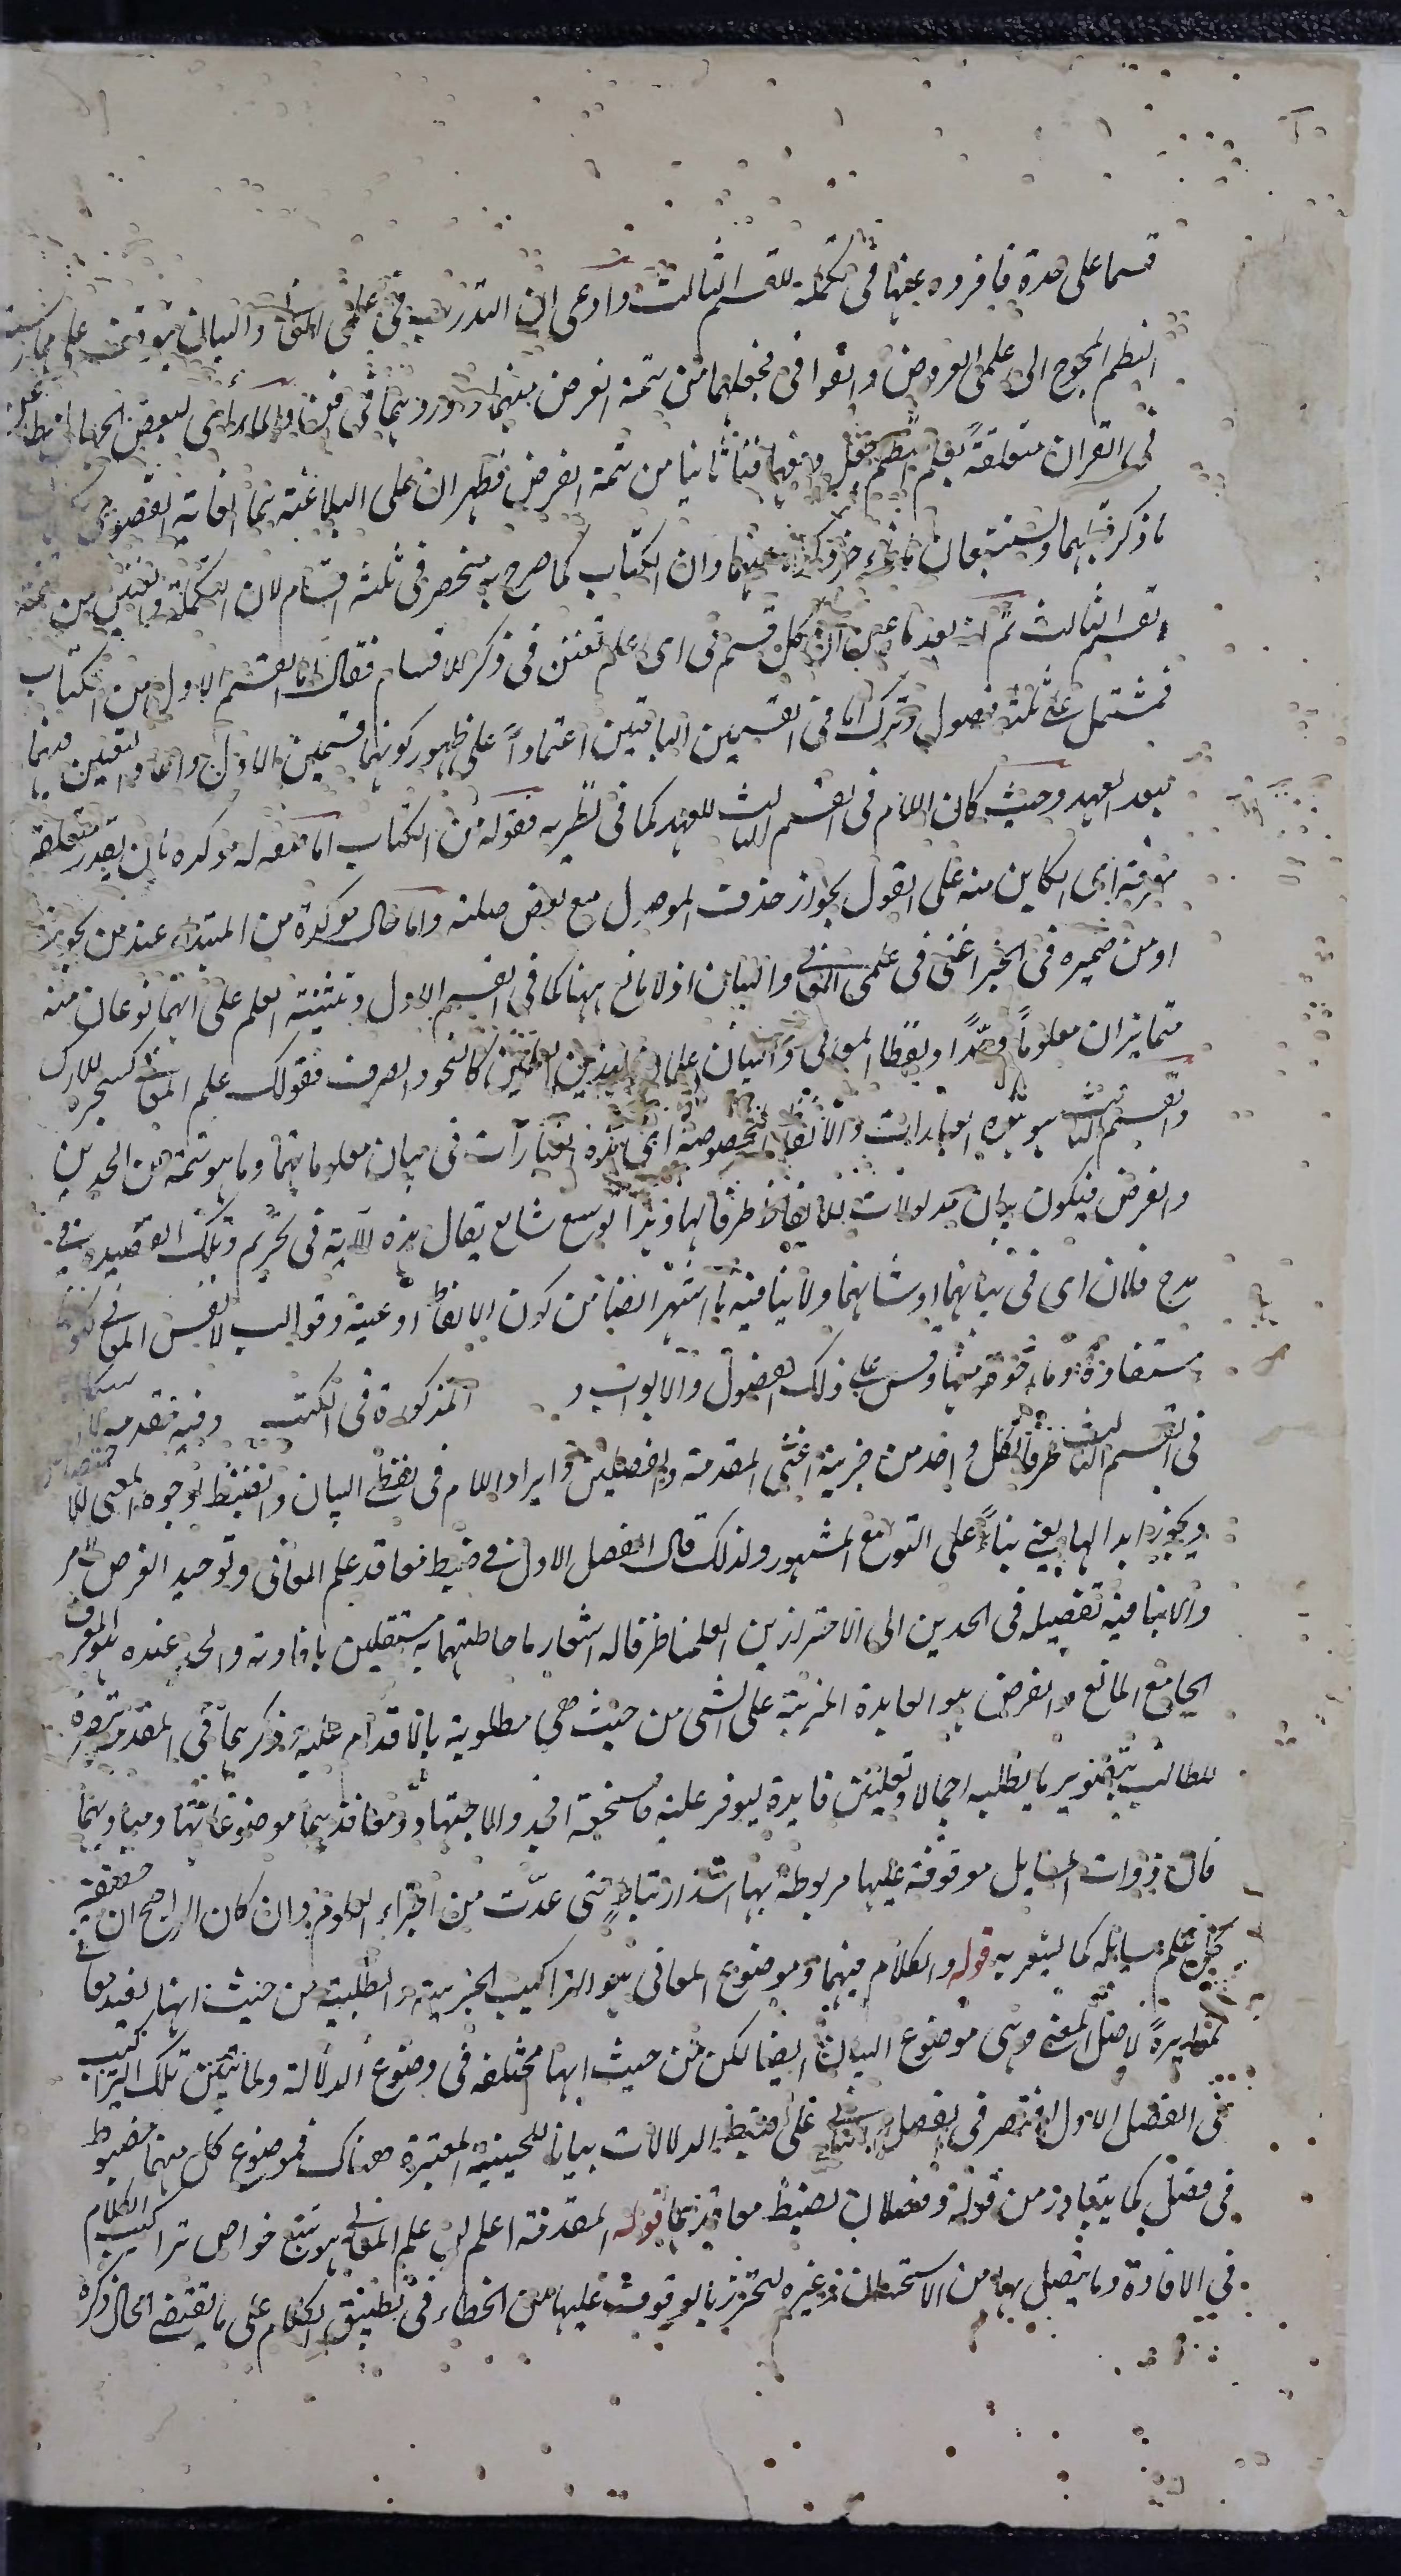 قسما على حدة فافرده عنها فى تكملة للقسم الثالث وادعى ان التدرب فى علمى المعانى والبيان يتوقف على ممارسة
النظم المحوج الى علمى العروض والقوافى فجعلهما من تتمة الغرض منهما واوردهما فى فن ولما رأى لبعض الجهال مطاعن
فى القران متعلقة بعلم النظم جعل دفعها فنا ثانيا من تتمة الغرض فظهر ان علمى البلاغة هما الغاية القصوى
ما ذكر قبلهما ويستتبعان ما اخر ذكره عنهما وان الكتاب كما صرح به منحصر فى ثلثة اقسام لان التكملة والفنين من تتمة
القسم الثالث ثم انه بعد ما عين ان كل قسم فى اى علم تفنن فى ذكر الاقسام فقال اما القسم الاول من الكتاب
فمشتمل على ثلثة فصول وترك اما فى القسمين الباقيين اعتمادا على ظهور كونهما قسيمين للاول وافاد التعيين فيهما
بعد العهد وحيث كان اللام فى القسم الثالث للعهد كما فى نظيريه فقوله من الكتاب اما صفة له مؤكدة بان يقدر متعلقه
معرفة اى الكاين منه على القول بجواز حذف الموصول مع بعض صلته واما حال مؤكدة من المبتداء عند من يجوزه
او من ضميره فى الخبر اعنى فى علمى المعانى والبيان اذ لا مانع ههنا كما فى القسم الاول وتثنية العلم على انهما نوعان منه
متمايزان معلوما وحدا ولفظا المعانى والبيان علمان لهذين العلمين كالنحو والصرف فقولك علم المعانى كشجر الاراك
والقسم الثالث هو هذه العبارات والالفاظ المخصوصة اى هذه العبارات فى بيان معلوماتهما وما هو تتمة من الحدين
والغرض فيكون بيان مدلولات الالفاظ ظرفا لها وهذا توسع شايع يقال هذه الآية فى تحريم وتلك القصيدة فى
مدح فلان اى فى بيانهما او شانهما ولا ينافيه ما اشتهر ايضا من كون الالفاظ اوعية وقوالب لانفس المعانى لكونها
مستفادة وماخوذة منها وقس على ذلك الفصول والابواب المذكورة فى الكتب وفيه مقدمة
فى القسم الثالث ظرفا لكل واحد من جزئيه اعنى المقدمة والفصلين وايراد اللام فى لفظى البيان والضبط لوجوه المعنى للاختصاص
ويجوز ابدالها بفى بناء على التوسع المشهور ولذلك قال الفصل الاول فى ضبط معاقد علم المعانى وتوحيد الغرض
ولا ينافيه تفصيله فى الحدين الى الاحترازين العلمنا ظرفا له اشعار باحاطتهما به مستقلين بافادته والحد عنده هو المعرف
الجامع المانع والغرض هو الفايدة المترتبة على الشى من حيث هى مطلوبة بالاقدام عليه ذكرهما فى المقدمة تبصرة
للطالب بتصوير ما يطلبه اجمالا وتعيين فايدة ليوفر عليه ما يستحقه من الجد والاجتهاد ومعاقدهما موضوعاتهما ومباديهما
فان ذوات المسايل موقوفة عليها مربوطة بها اشد ارتباط حتى عدت من اجزاء العلوم وان كان الراجح ان حقيقة
كل علم مسايله كما يشعر به قوله والكلام فيهما وموضوع المعانى هو التراكيب الخبرية والطلبية من حيث انها تفيد معانى
مغايرة لاصل المعنى وهى موضوع البيان ايضا لكن من حيث انها مختلفة فى وضوح الدلالة ولما تبين تلك التراكيب
فى الفصل الاول اقتصر فى الفصل الثانى على ضبط الدلالات بيانا للحيثية المعتبرة هناك فموضوع كل منهما مضبوط
فى فصل كما يتبادر من قوله وفصلان لضبط معاقدهما قوله المقدمة اعلم ان علم المعانى هو تتبع خواص تراكيب الكلام
فى الافادة وما يتصل بها من الاستحسان وغيره ليحترز بالوقوف عليها من الخطاء فى تطبيق الكلام على ما يقتضى الحال ذكره